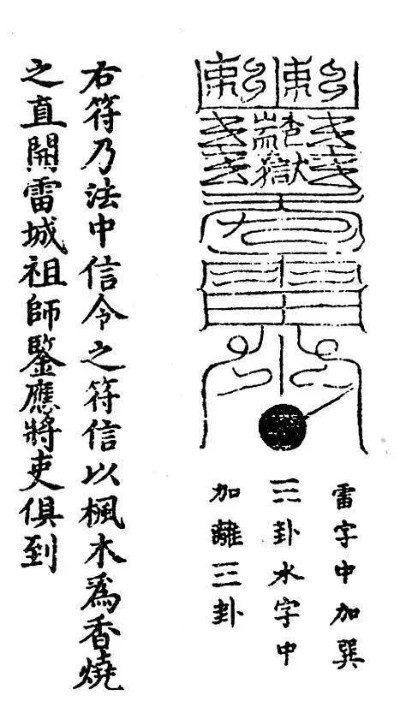 雷字中加巽
☴卦水字中
加離☲卦
右符乃法中信令之符信以楓木爲香燒
之直開雷城祖師鑒應將吏俱到